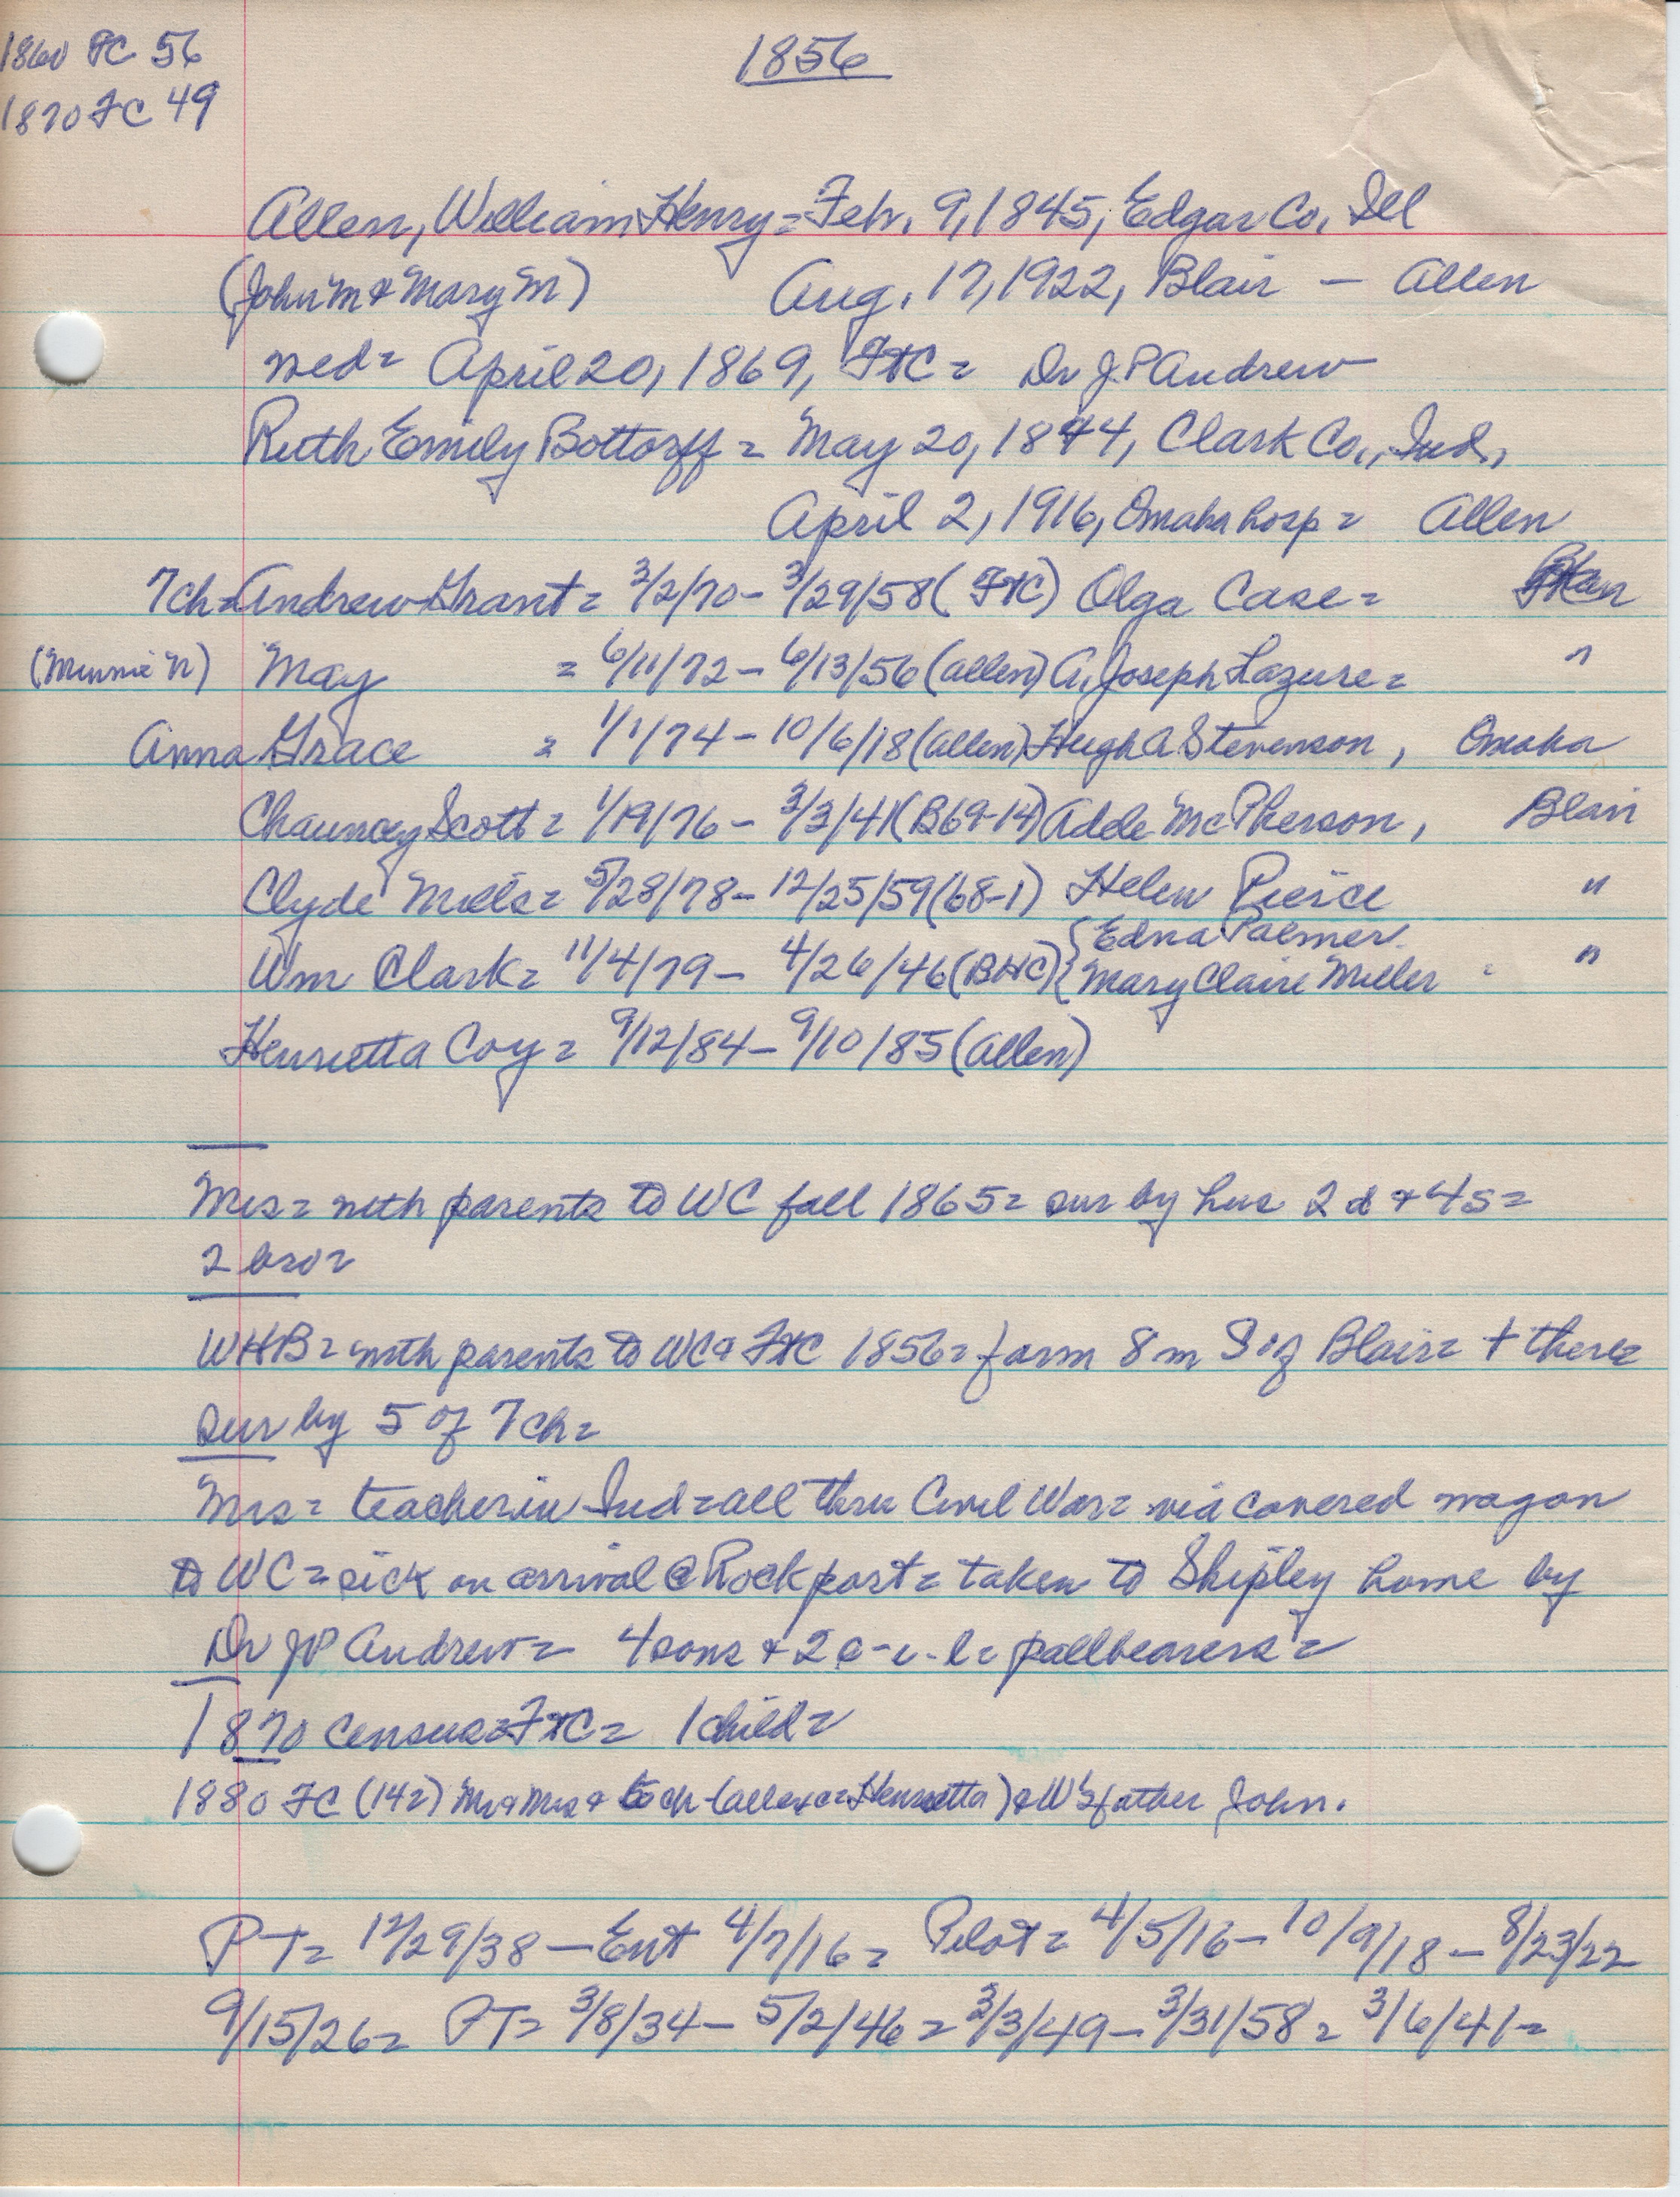 1860 FC 56
1870 FC 49
1856
Allen, William Henry = Feb. 9, 1845, Edgar Co, Ill
(John M & Mary M) Aug. 17, 1922, Blair - Allen
med = April 20, 1869, FtC = Dr J.P Andrew
Ruth Emily Bottorff = May 20, 1844, Clark Co., Ind.,
April 2, 1916, Omaha hosp = Allen
7ch = Andrew Grant = 3/2/70 - 3/29/58 ( FtC) Olga Case =
(Minnie N) May = 6/11/72 - 6/13/56 (Allen) A. Joseph Lazure = "
Anna Grace = 1/1/74 - 10/6/18 (Allen) Hugh A Stevenson, Omaha
Chauncey Scott = 1/19/76 - 3/3/41 (B69-14) Adele McPherson, Blair
Clyde Mills = 5/28/78 - 12/25/59 (68-1) Helen Pierce "
{Edna Palmer
Wm Clark = 11/4/79 - 4/26/46 (BHC) {Mary Claire Miller "
Henrietta Coy = 9/12/84 - 9/10/85 (Allen)
Mrs = with parents to WC fall 1865 = sur by hus 2 d & 4 s =
2 bro =
WHB = with parents to WC & FtC 1856 = farm 8 m S of Blair = + there =
sur by 5 of 7 ch =
Mrs = teacher in Ind = all thru Civil War = via covered wagon
to WC = sick on arrival @ Rockport = taken to Shipley home by
Dr JP Andrew = 4 sons & 2 s-i-l = pallbearers =
1870 census = FtC = 1 child =
1880 FC (142) Mr & Mrs & 6 ch - (all exc = Henrietta) & W's father John.
PT = 12/29/38 - Ent 4/7/16 = Pilot = 4/5/16 - 10/9/18 - 8/23/22
9/15/26 = PT = 3/8/34 - 5/2/46 = 3/3/49 - 3/31/58 = 3/6/41 =